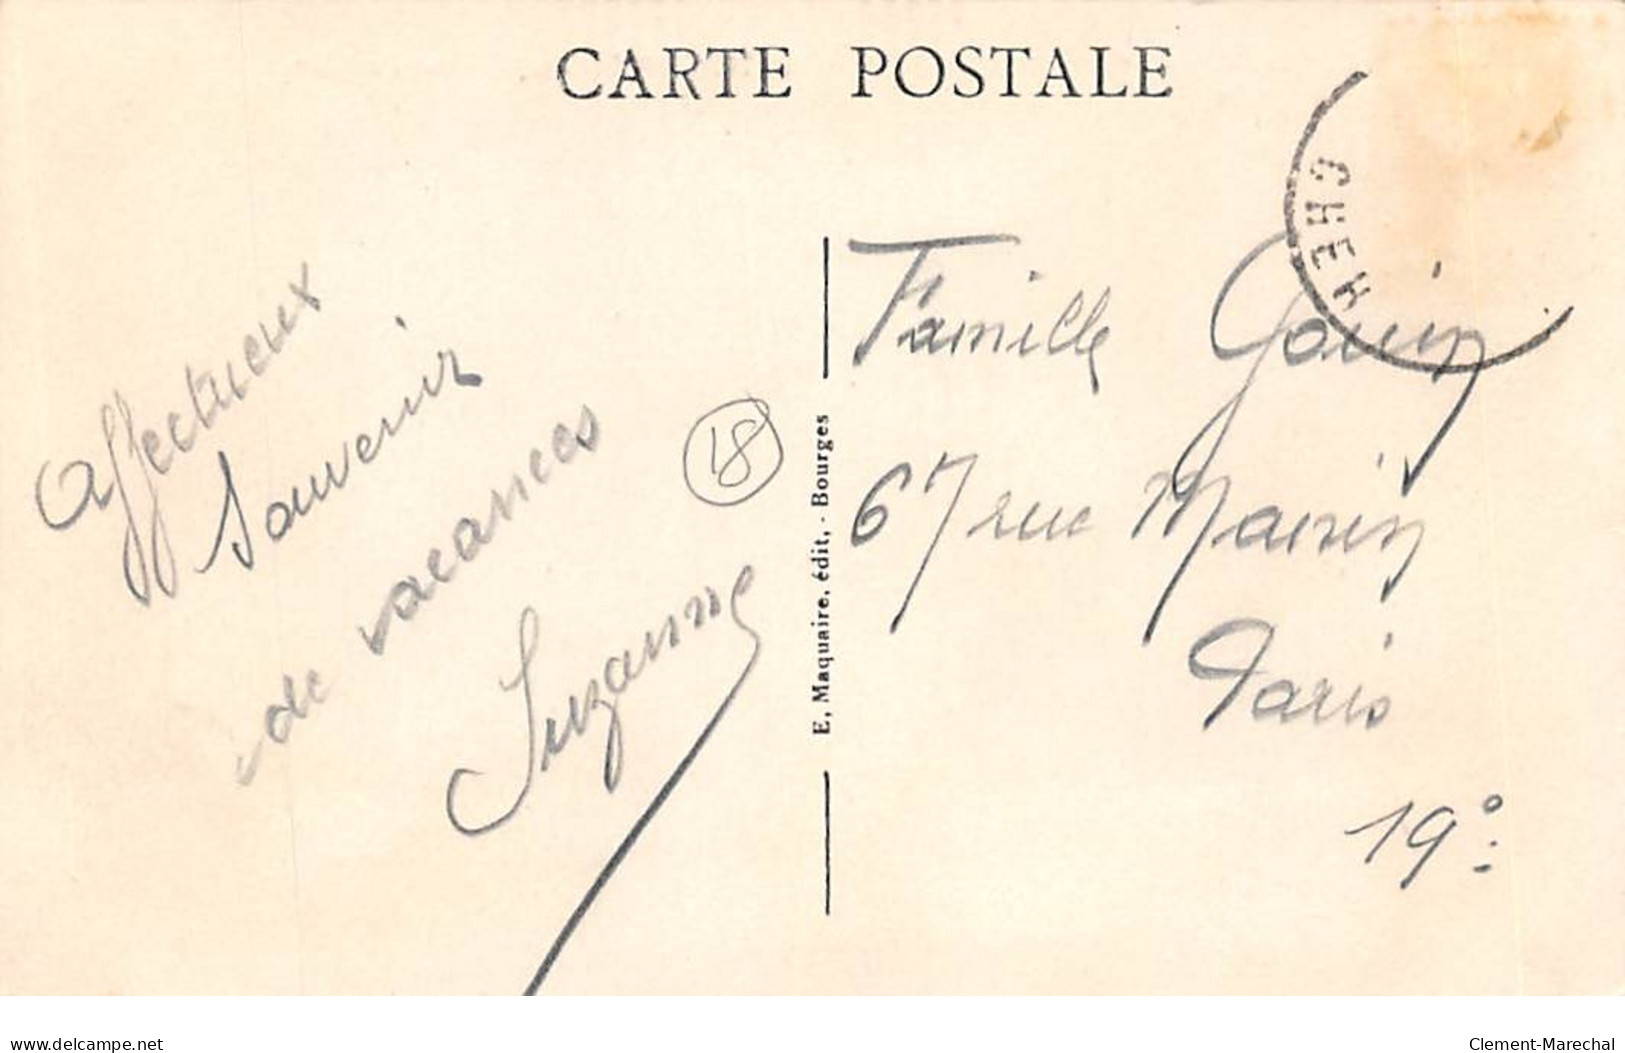 CARTE POSTALE
CHER
Affectueux
Souvenir
de vacances
Suzanne
18
E. Maquaire, édit, - Bourges
Famille Gouin
67 rue Manin
Paris
19°
www.delcampe.net
Clement-Marechal